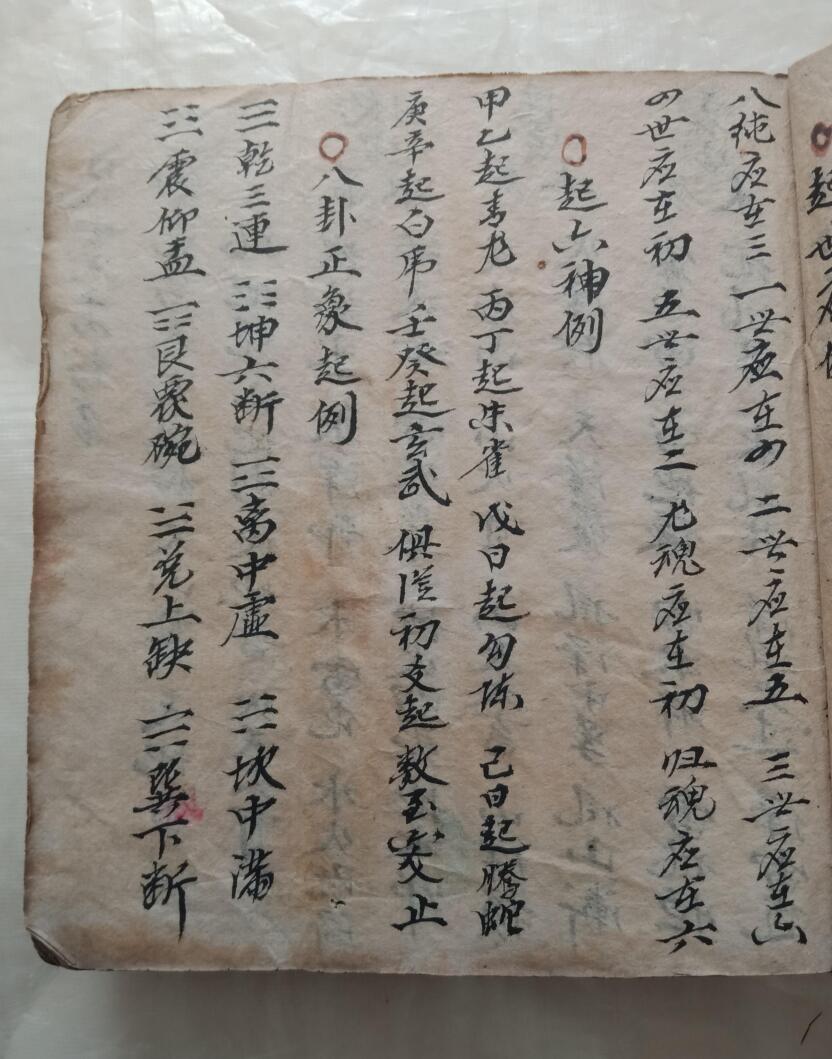 起
八純应在三 一世应在四 二世应在五 三世应在六
四世应在初 五世应在二 尤魂应在初 归魂应在六
〇起六神例
甲乙起青龙 丙丁起朱雀 戊日起勾陈 己日起腾蛇
庚辛起白虎 壬癸起玄武 俱従初爻起数至爻止
〇八卦正象起例
☰乾三連 ☷坤六断 ☲离中虚 ☵坎中满
☳震仰盂 ☶艮覆碗 ☱兑上缺 ☴巽下断